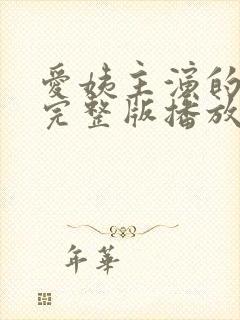 爱姨主演的
完整版播放
年華